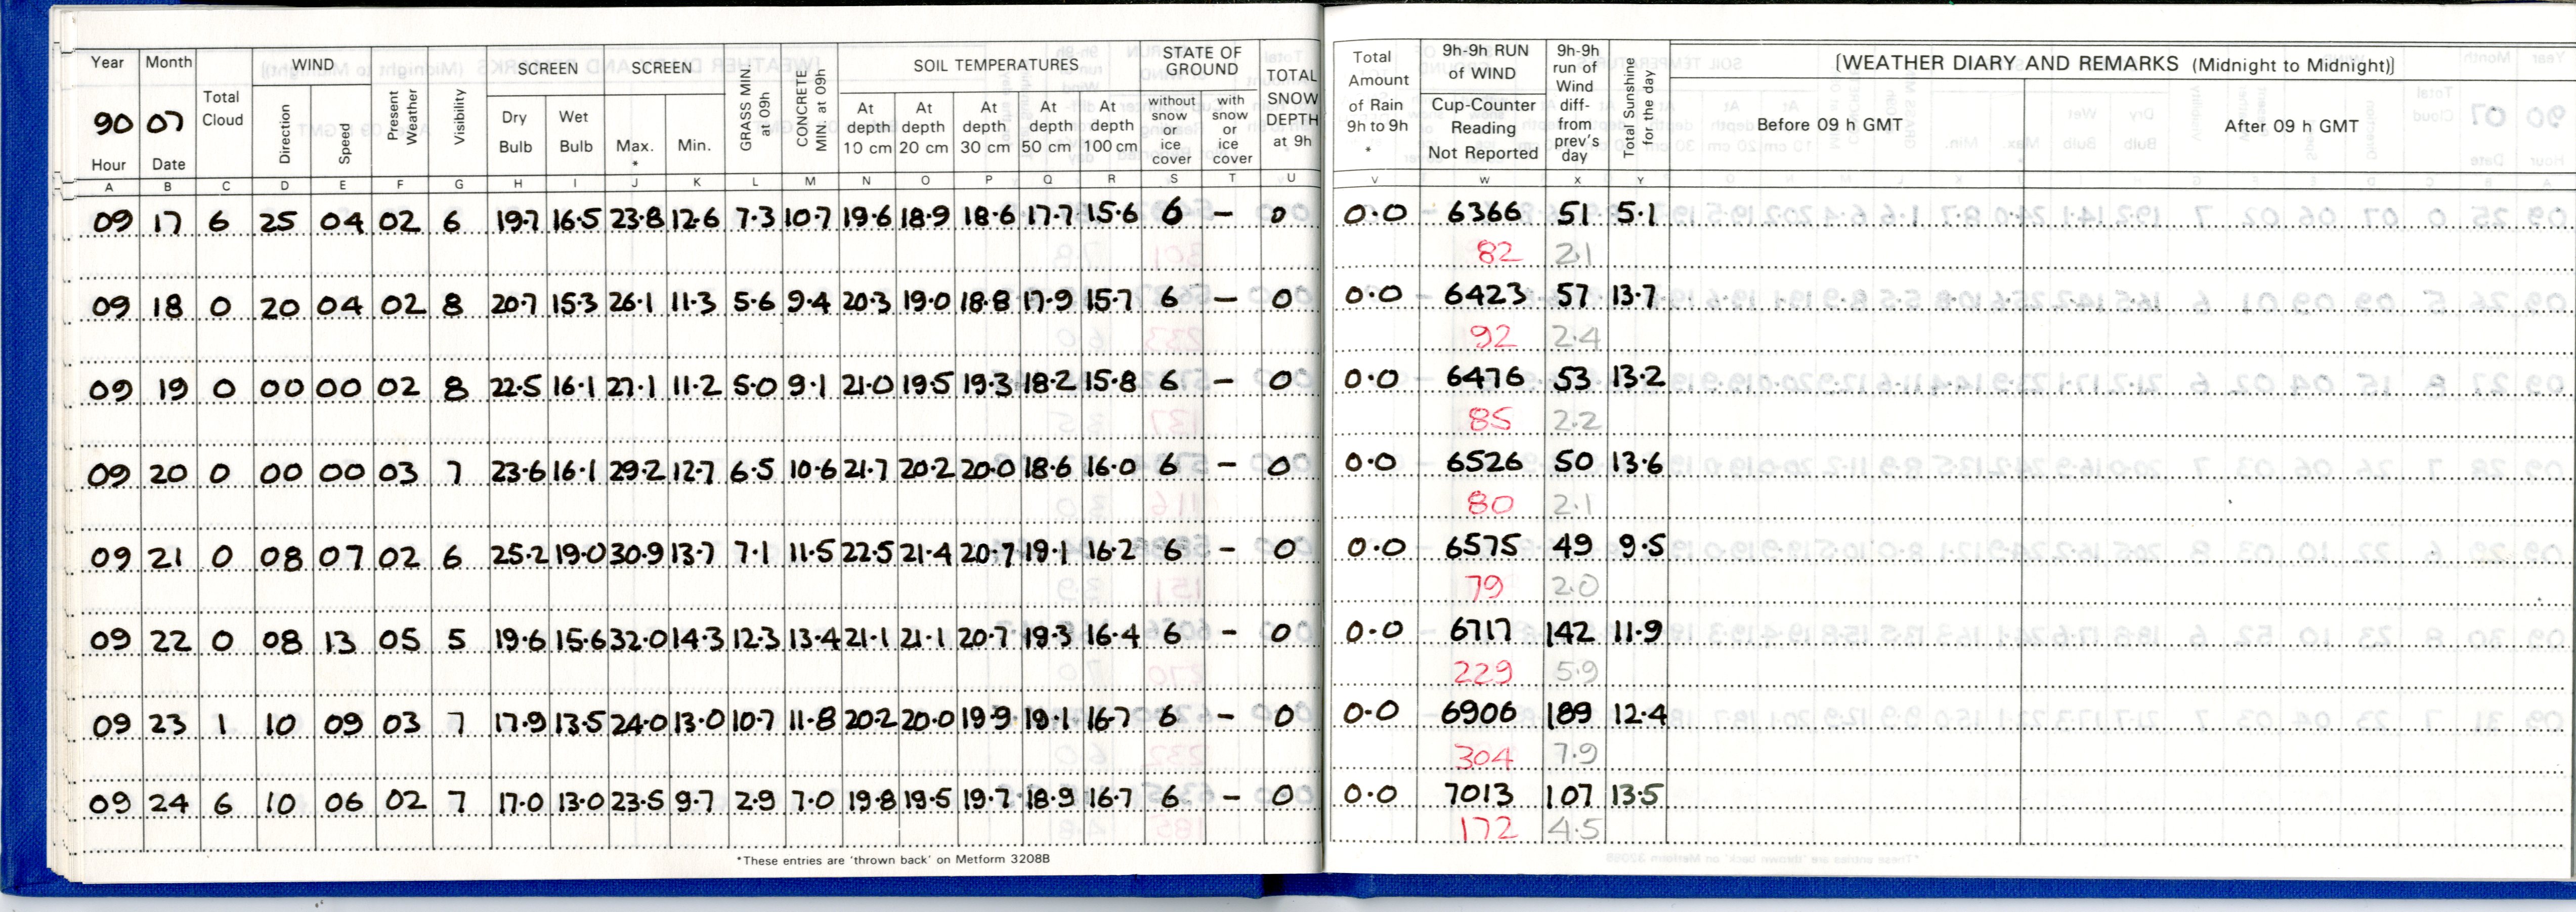 Year Month Total Cloud WIND Present Weather Visibility SCREEN SCREEN GRASS MIN. at 09h CONCRETE MIN. at 09h SOIL TEMPERATURES STATE OF GROUND TOTAL SNOW DEPTH at 9h Total Amount of Rain 9h to 9h * 9h-9h RUN of WIND 9h-9h run of Wind diff- from prev's day Total Sunshine for the day [WEATHER DIARY AND REMARKS (Midnight to Midnight)]
90 07 Direction Speed Dry Bulb Wet Bulb Max. * Min. At depth 10 cm At depth 20 cm At depth 30 cm At depth 50 cm At depth 100 cm without snow or ice cover with snow or ice cover Cup-Counter Reading Not Reported Before 09 h GMT After 09 h GMT
Hour Date
A B C D E F G H I J K L M N O P Q R S T U V W X Y
09 17 6 25 04 02 6 19.7 16.5 23.8 12.6 7.3 10.7 19.6 18.9 18.6 17.7 15.6 6 – 0 0.0 6366 51 5.1
82 2.1
09 18 0 20 04 02 8 20.7 15.3 26.1 11.3 5.6 9.4 20.3 19.0 18.8 17.9 15.7 6 – 0 0.0 6423 57 13.7
92 2.4
09 19 0 00 00 02 8 22.5 16.1 27.1 11.2 5.0 9.1 21.0 19.5 19.3 18.2 15.8 6 – 0 0.0 6476 53 13.2
85 2.2
09 20 0 00 00 03 7 23.6 16.1 29.2 12.7 6.5 10.6 21.7 20.2 20.0 18.6 16.0 6 – 0 0.0 6526 50 13.6
80 2.1
09 21 0 08 07 02 6 25.2 19.0 30.9 13.7 7.1 11.5 22.5 21.4 20.7 19.1 16.2 6 – 0 0.0 6575 49 9.5
79 2.0
09 22 0 08 13 05 5 19.6 15.6 32.0 14.3 12.3 13.4 21.1 21.1 20.7 19.3 16.4 6 – 0 0.0 6717 142 11.9
229 5.9
09 23 1 10 09 03 7 17.9 13.5 24.0 13.0 10.7 11.8 20.2 20.0 19.9 19.1 16.7 6 – 0 0.0 6906 189 12.4
304 7.9
09 24 6 10 06 02 7 17.0 13.0 23.5 9.7 2.9 7.0 19.8 19.5 19.7 18.9 16.7 6 – 0 0.0 7013 107 13.5
172 4.5
*These entries are 'thrown back' on Metform 3208B